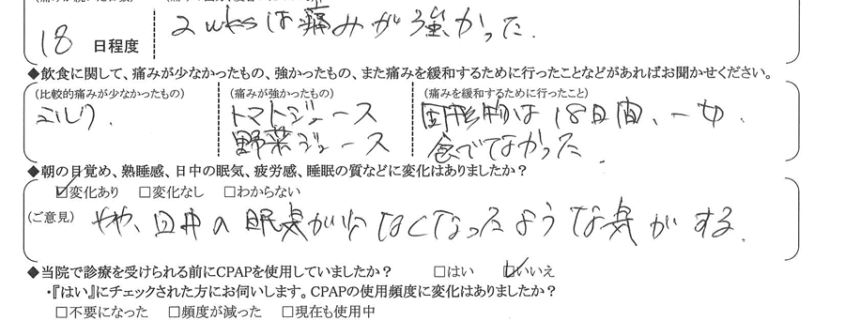 18 日程度
2 wksは痛みが強かった.
◆飲食に関して、痛みが少なかったもの、強かったもの、また痛みを緩和するために行ったことなどがあればお聞かせください。
(比較的痛みが少なかったもの) (痛みが強かったもの) (痛みを緩和するために行ったこと)
ミルク. トマトジュース 固形物は18日間、一切
野菜ジュース 食べてなかった.
◆朝の目覚め、熟睡感、日中の眠気、疲労感、睡眠の質などに変化はありましたか?
☑変化あり □変化なし □わからない
(ご意見) やや、日中の眠気が少なくなったような気がする.
◆当院で診療を受けられる前にCPAPを使用していましたか? □はい ☑いいえ
・『はい』にチェックされた方にお伺いします。CPAPの使用頻度に変化はありましたか?
□不要になった □頻度が減った □現在も使用中